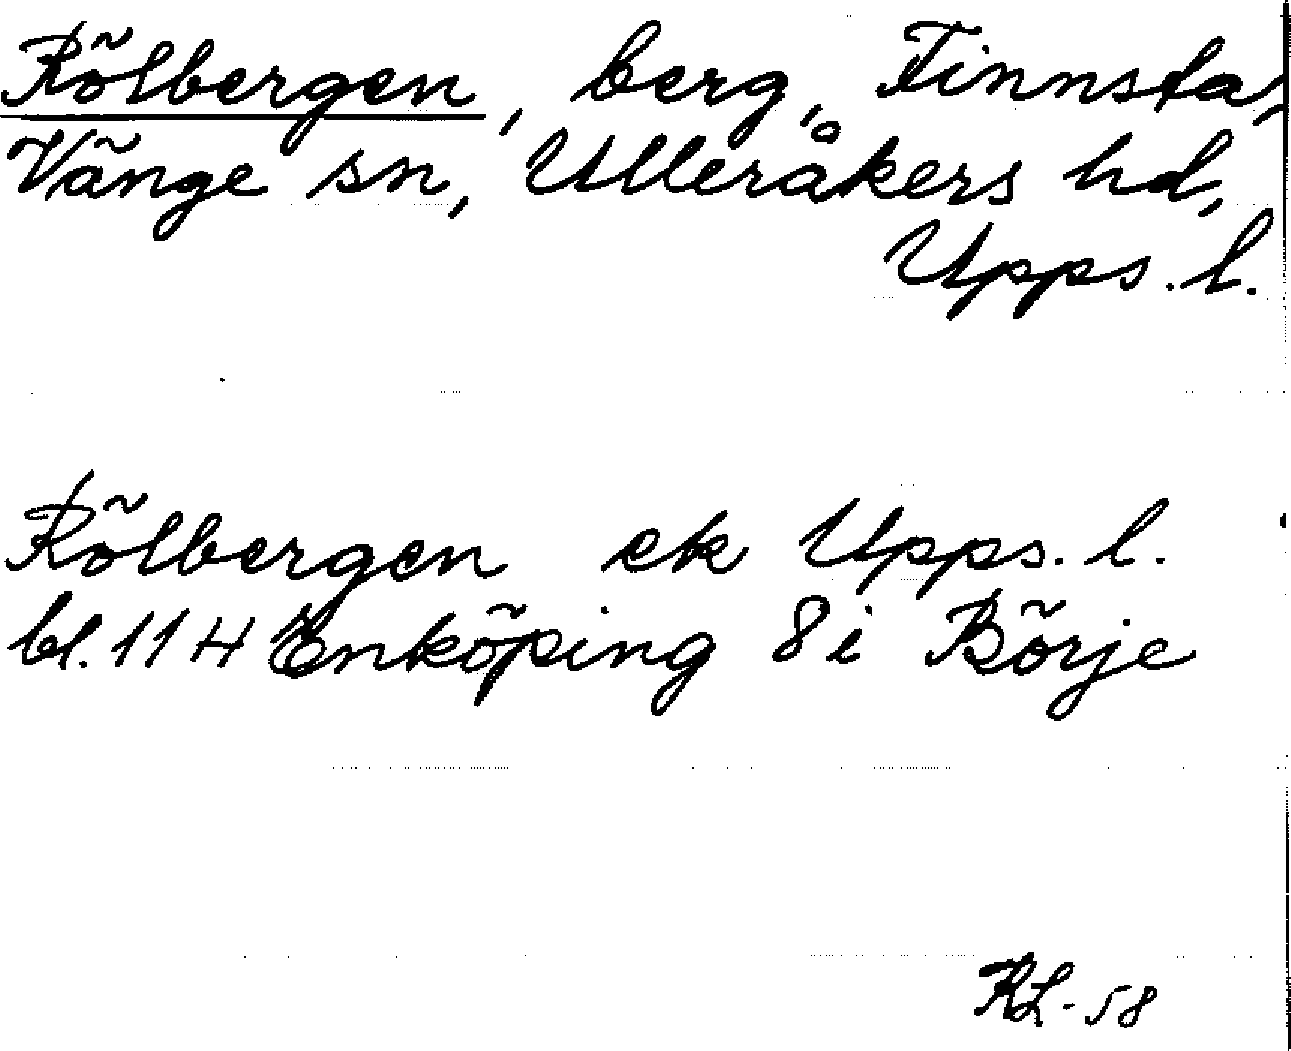 Rölbergen, berg, Finnsta,
Vänge sn, Ulleråkers hd,
Upps. l.
Rölbergen ek Upps. l.
bl. 11 H Enköping 8 i Börje
RL-58